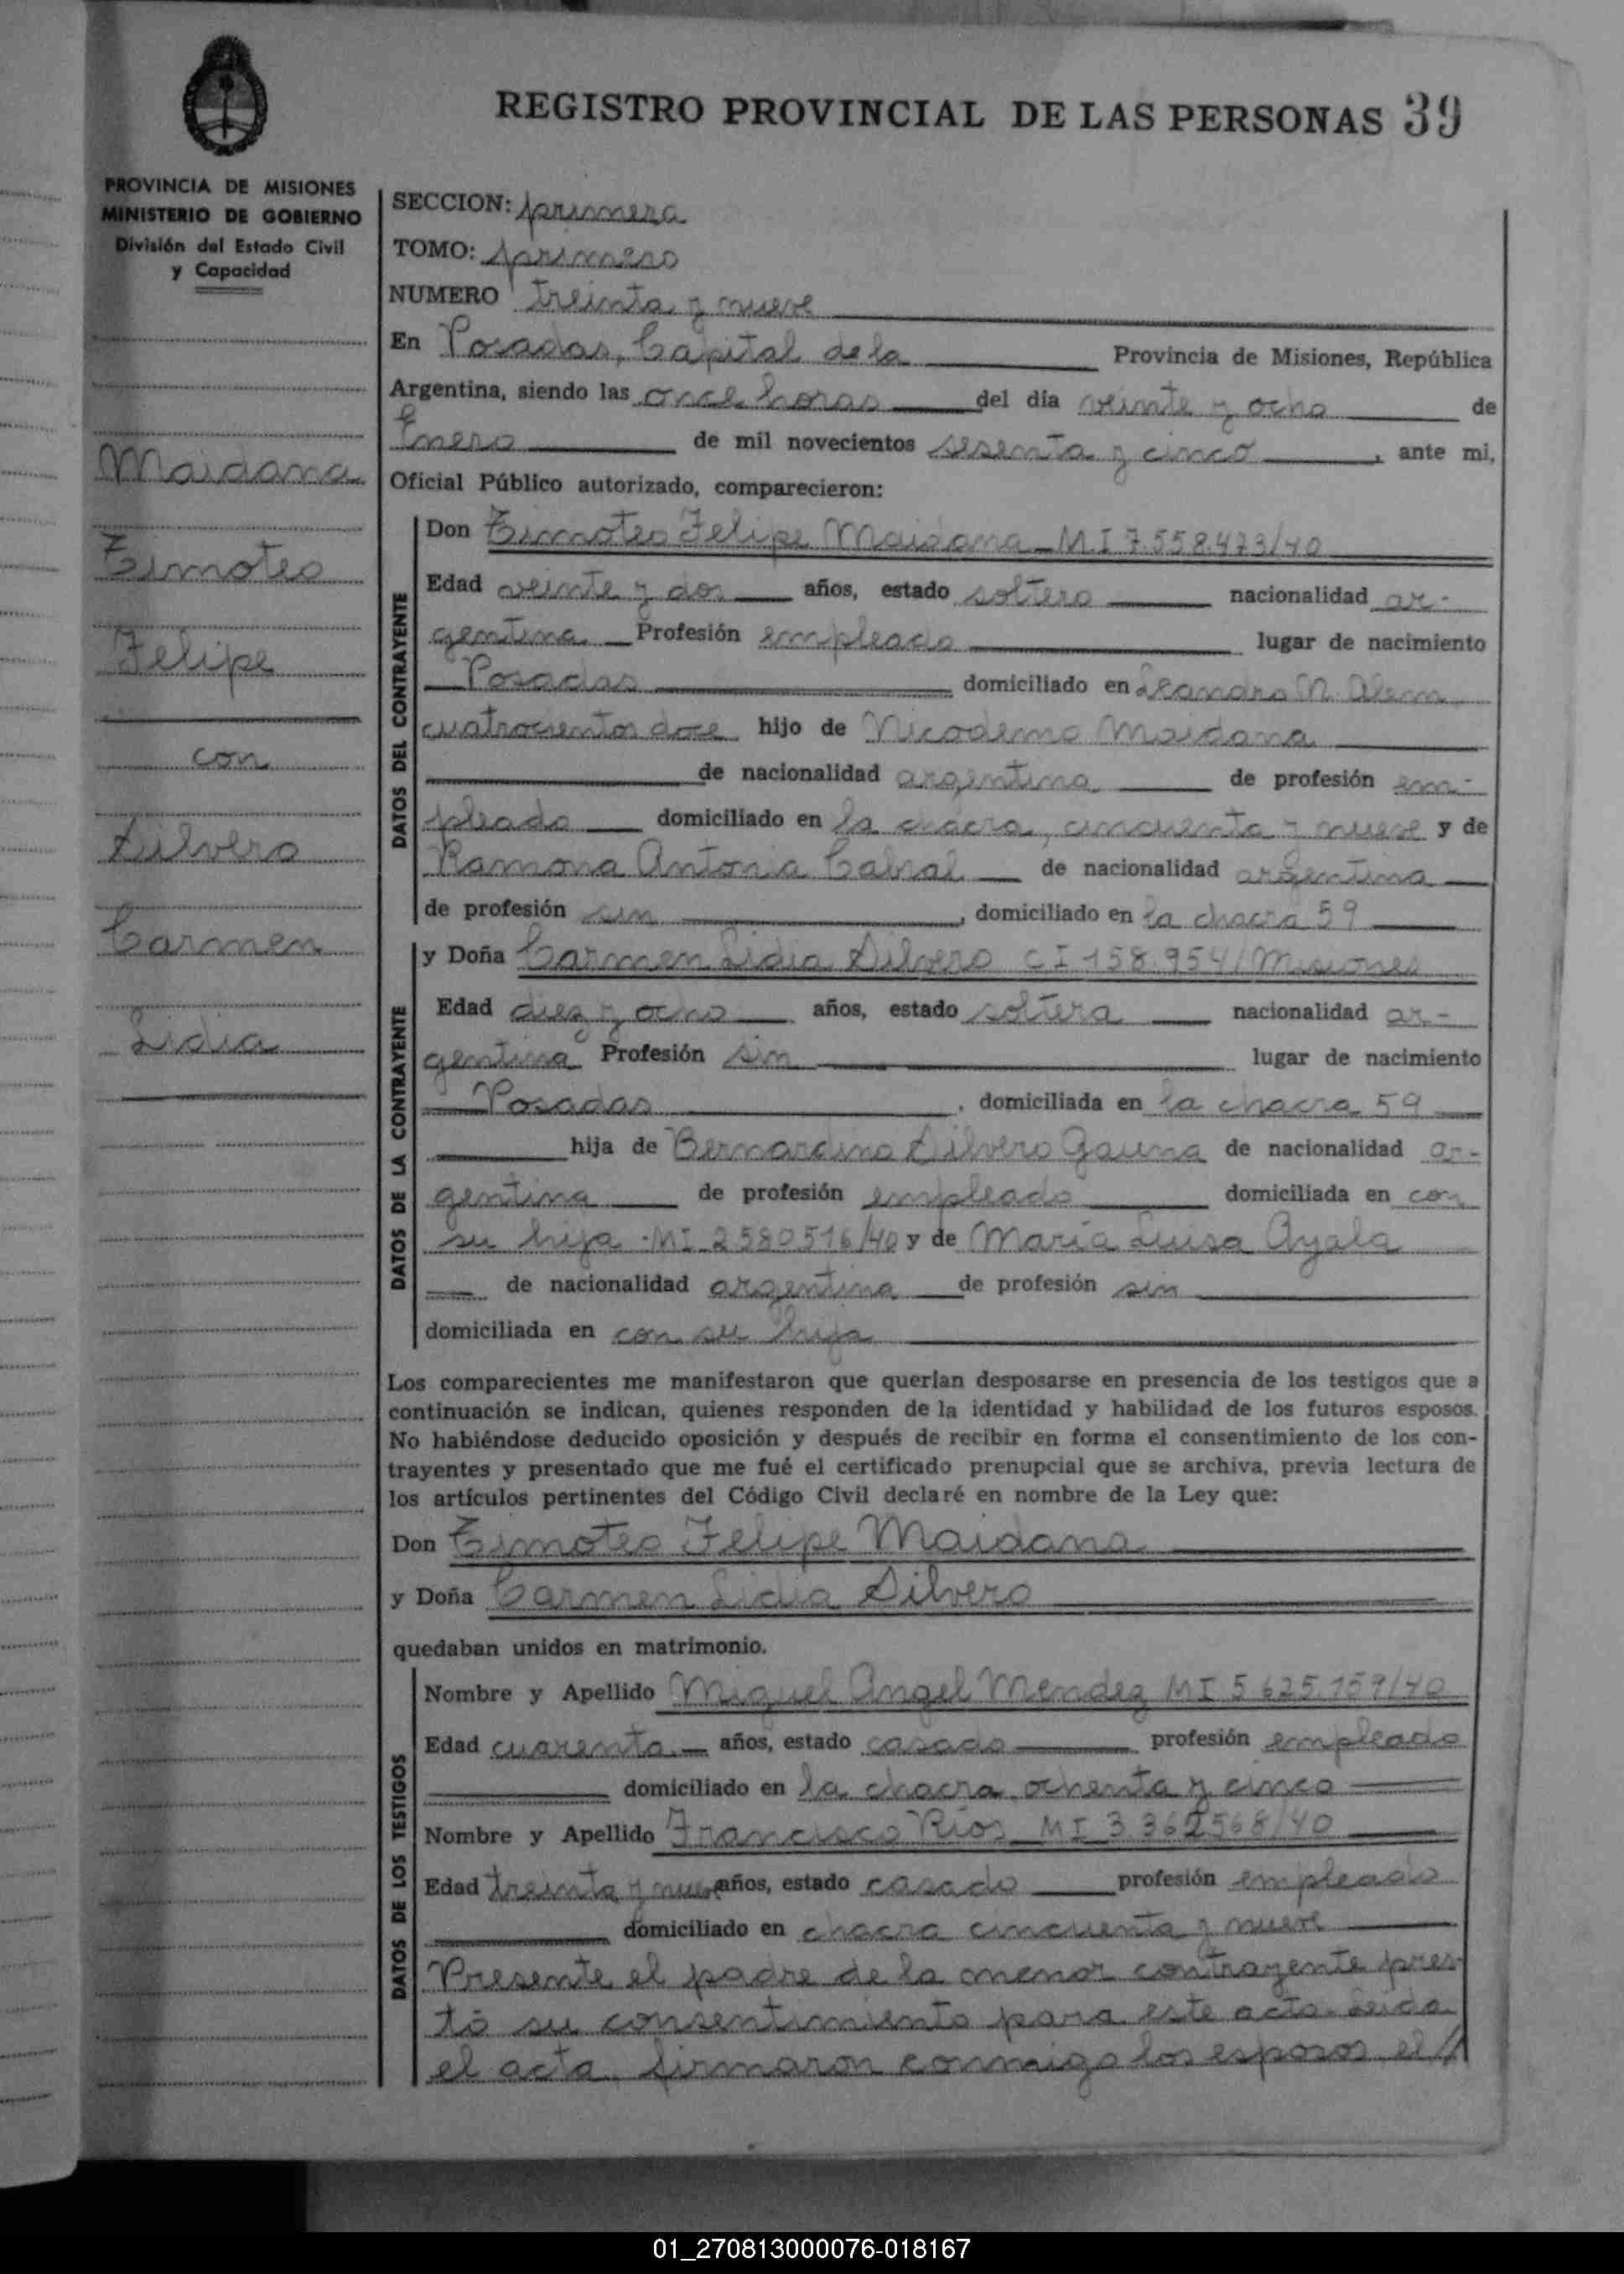 REGISTRO PROVINCIAL DE LAS PERSONAS 39
PROVINCIA DE MISIONES
MINISTERIO DE GOBIERNO
División del Estado Civil
y Capacidad
Maidana
Timoteo
Felipe
con
Silvero
Carmen
Lidia
SECCION: primera
TOMO: primero
NUMERO treinta y nueve
En Posadas, Capital de la Provincia de Misiones, República
Argentina, siendo las once horas del día veinte y ocho de
Enero de mil novecientos sesenta y cinco, ante mi,
Oficial Público autorizado, comparecieron:
DATOS DEL CONTRAYENTE
Don Timoteo Felipe Maidana M.I 7.558.473/40
Edad veinte y dos años, estado soltero nacionalidad ar-
gentina Profesión empleado lugar de nacimiento
Posadas domiciliado en Leandro N. Alem
cuatrocientos doce hijo de Nicodemo Maidana
de nacionalidad argentina de profesión em-
pleado domiciliado en la chacra, cincuenta y nueve y de
Ramona Antonia Cabral de nacionalidad argentina
de profesión sin, domiciliado en la chacra 59
DATOS DE LA CONTRAYENTE
y Doña Carmen Lidia Silvero CI 158.954/Misiones
Edad diez y ocho años, estado soltera nacionalidad ar-
gentina Profesión sin lugar de nacimiento
Posadas, domiciliada en la chacra 59
hija de Bernardino Silvero Gauna de nacionalidad ar-
gentina de profesión empleado domiciliada en con
su hija - MI 2580516/40 y de María Luisa Ayala
de nacionalidad argentina de profesión sin
domiciliada en con su hija
Los comparecientes me manifestaron que querían desposarse en presencia de los testigos que a
continuación se indican, quienes responden de la identidad y habilidad de los futuros esposos.
No habiéndose deducido oposición y después de recibir en forma el consentimiento de los con-
trayentes y presentado que me fué el certificado prenupcial que se archiva, previa lectura de
los artículos pertinentes del Código Civil declaré en nombre de la Ley que:
Don Timoteo Felipe Maidana
y Doña Carmen Lidia Silvero
quedaban unidos en matrimonio.
DATOS DE LOS TESTIGOS
Nombre y Apellido Miguel Angel Mendez MI 5.625.159/40
Edad cuarenta años, estado casado profesión empleado
domiciliado en la chacra ochenta y cinco
Nombre y Apellido Francisco Ríos MI 3.362568/40
Edad treinta y nueve años, estado casado profesión empleado
domiciliado en chacra cincuenta y nueve
Presente el padre de la menor contrayente pres-
tó su consentimiento para este acto. Leida
el acta, firmaron conmigo los esposos el //
01_270813000076-018167